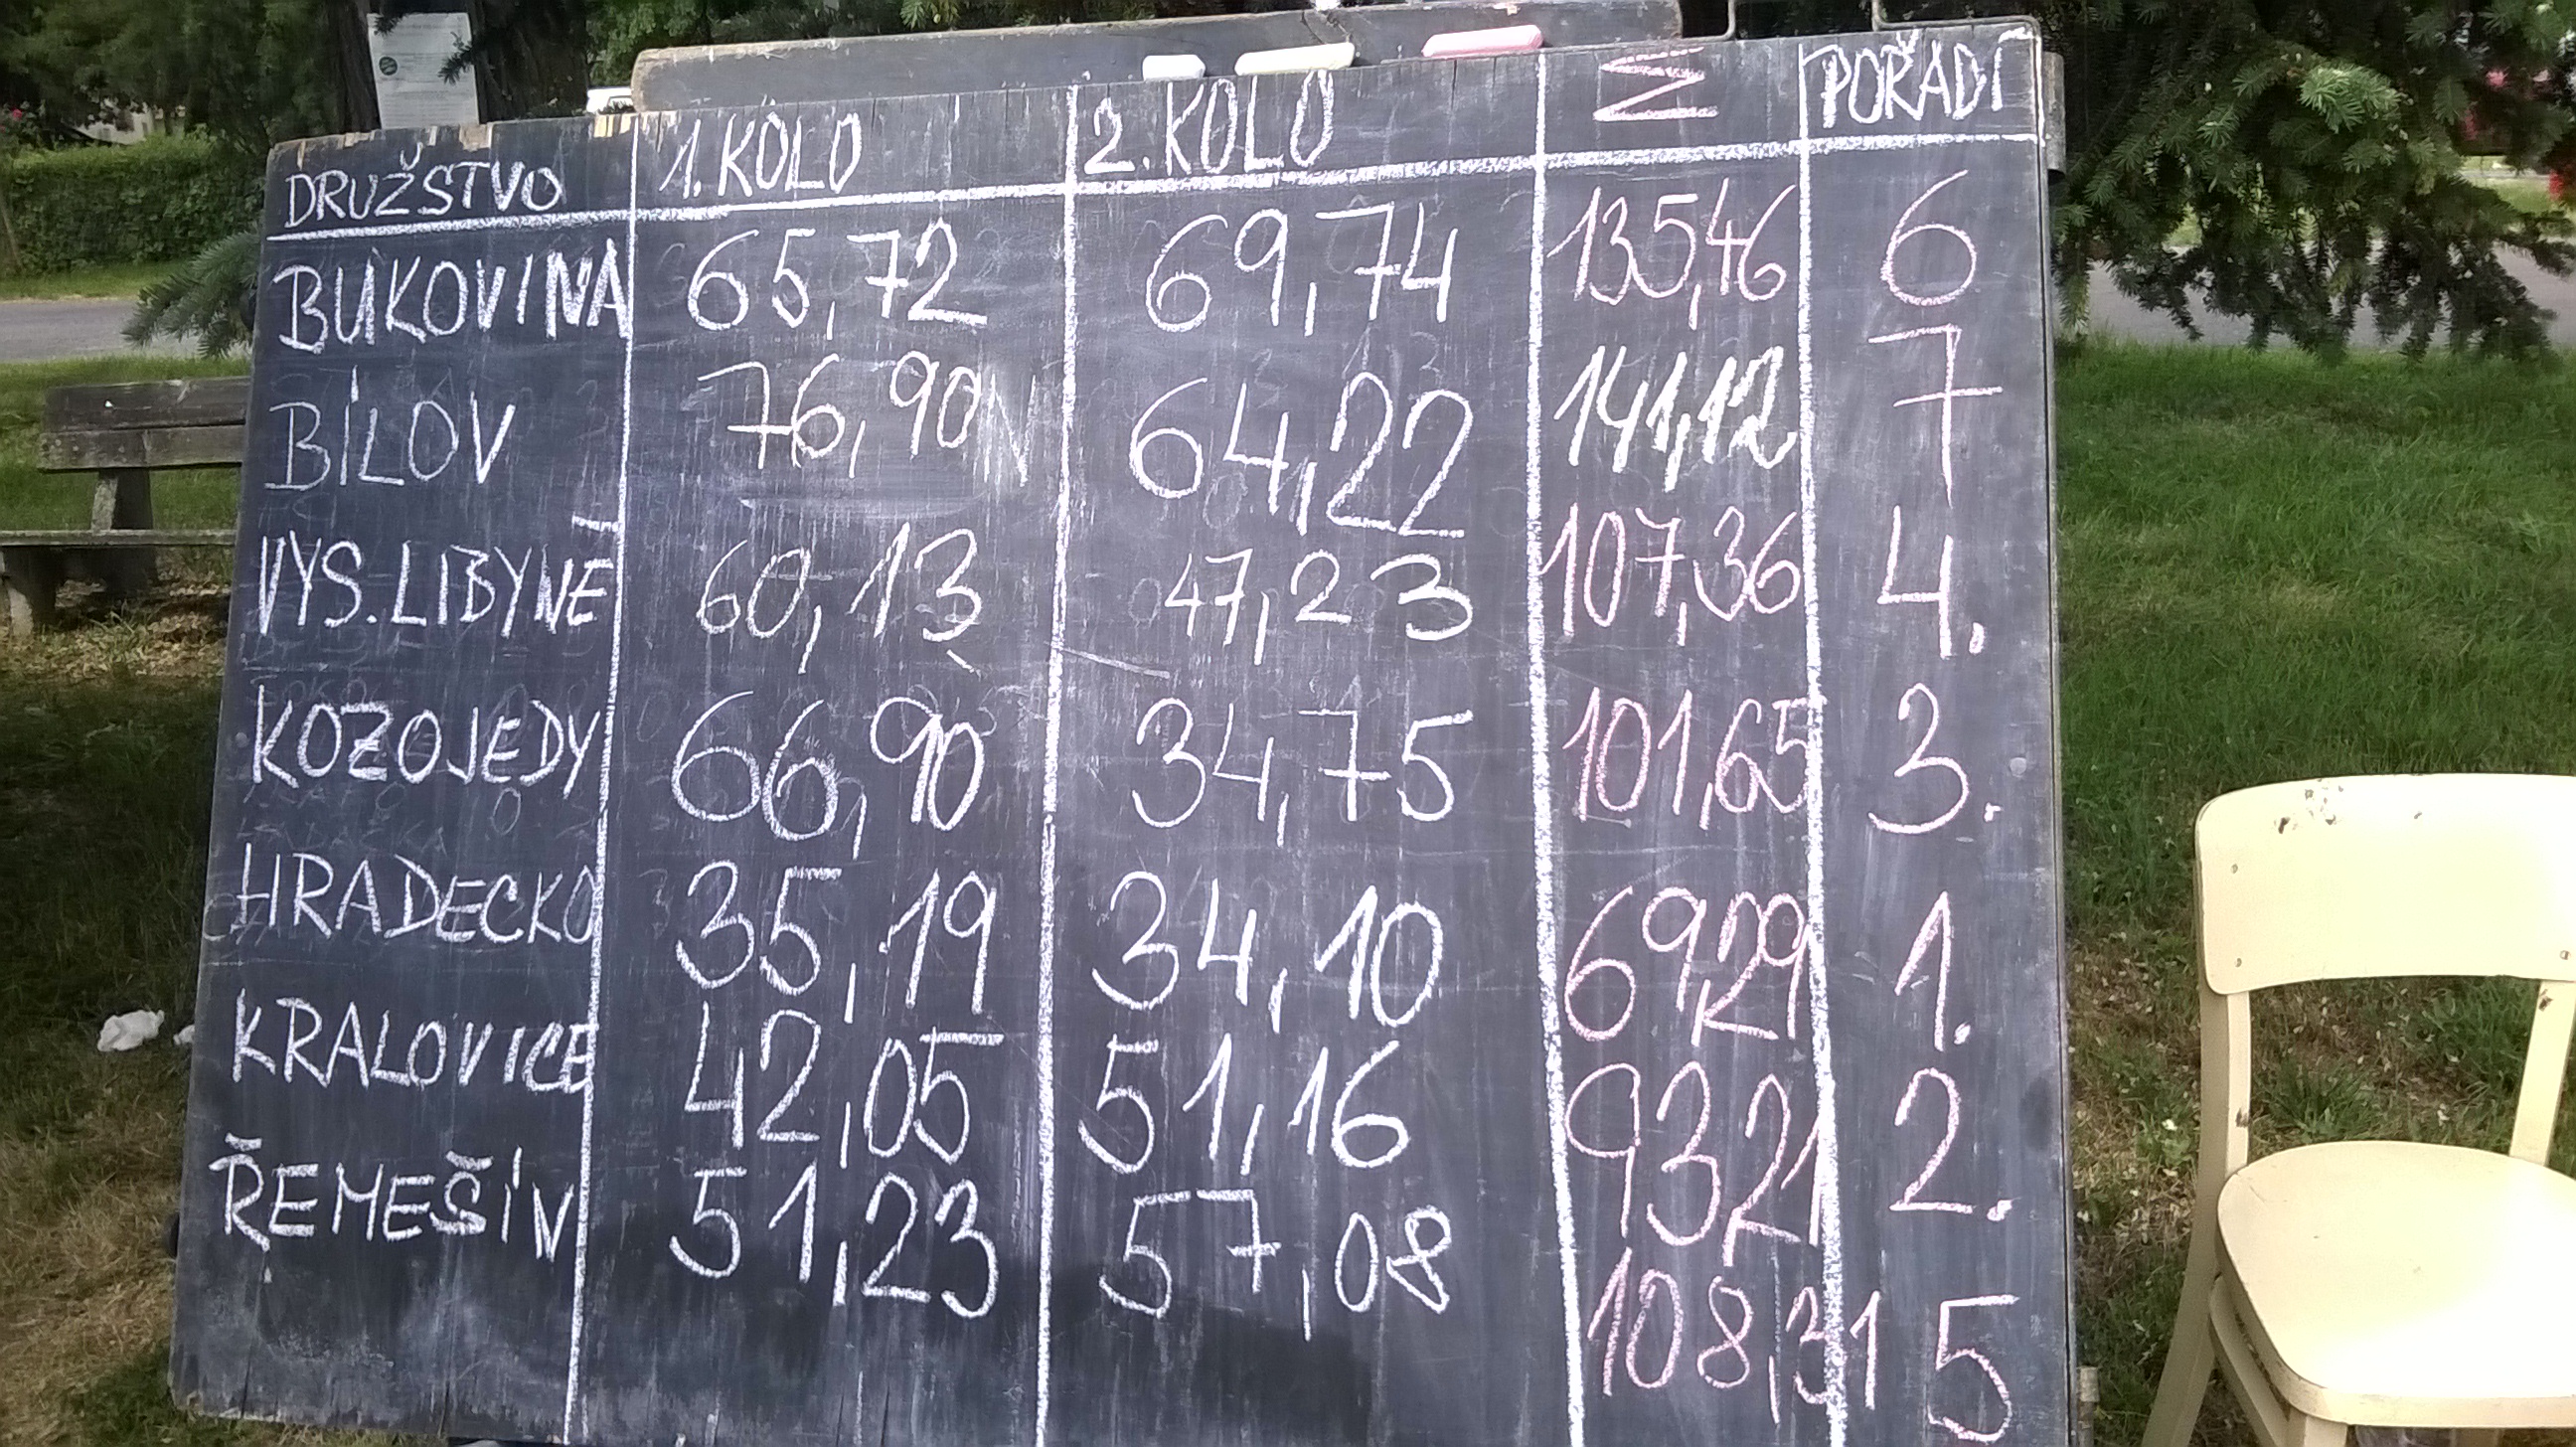 DRUŽSTVO 1. KOLO 2. KOLO Σ POŘADÍ
BUKOVINA 65,72 69,74 135,46 6
BÍLOV 76,90 N 64,22 141,12 7
VYS. LIBYNĚ 60,13 47,23 107,36 4.
KOZOJEDY 66,90 34,75 101,65 3.
HRADECKO 35,19 34,10 69,29 1.
KRALOVICE 42,05 51,16 93,21 2.
ŘEMEŠÍN 51,23 57,08 108,31 5